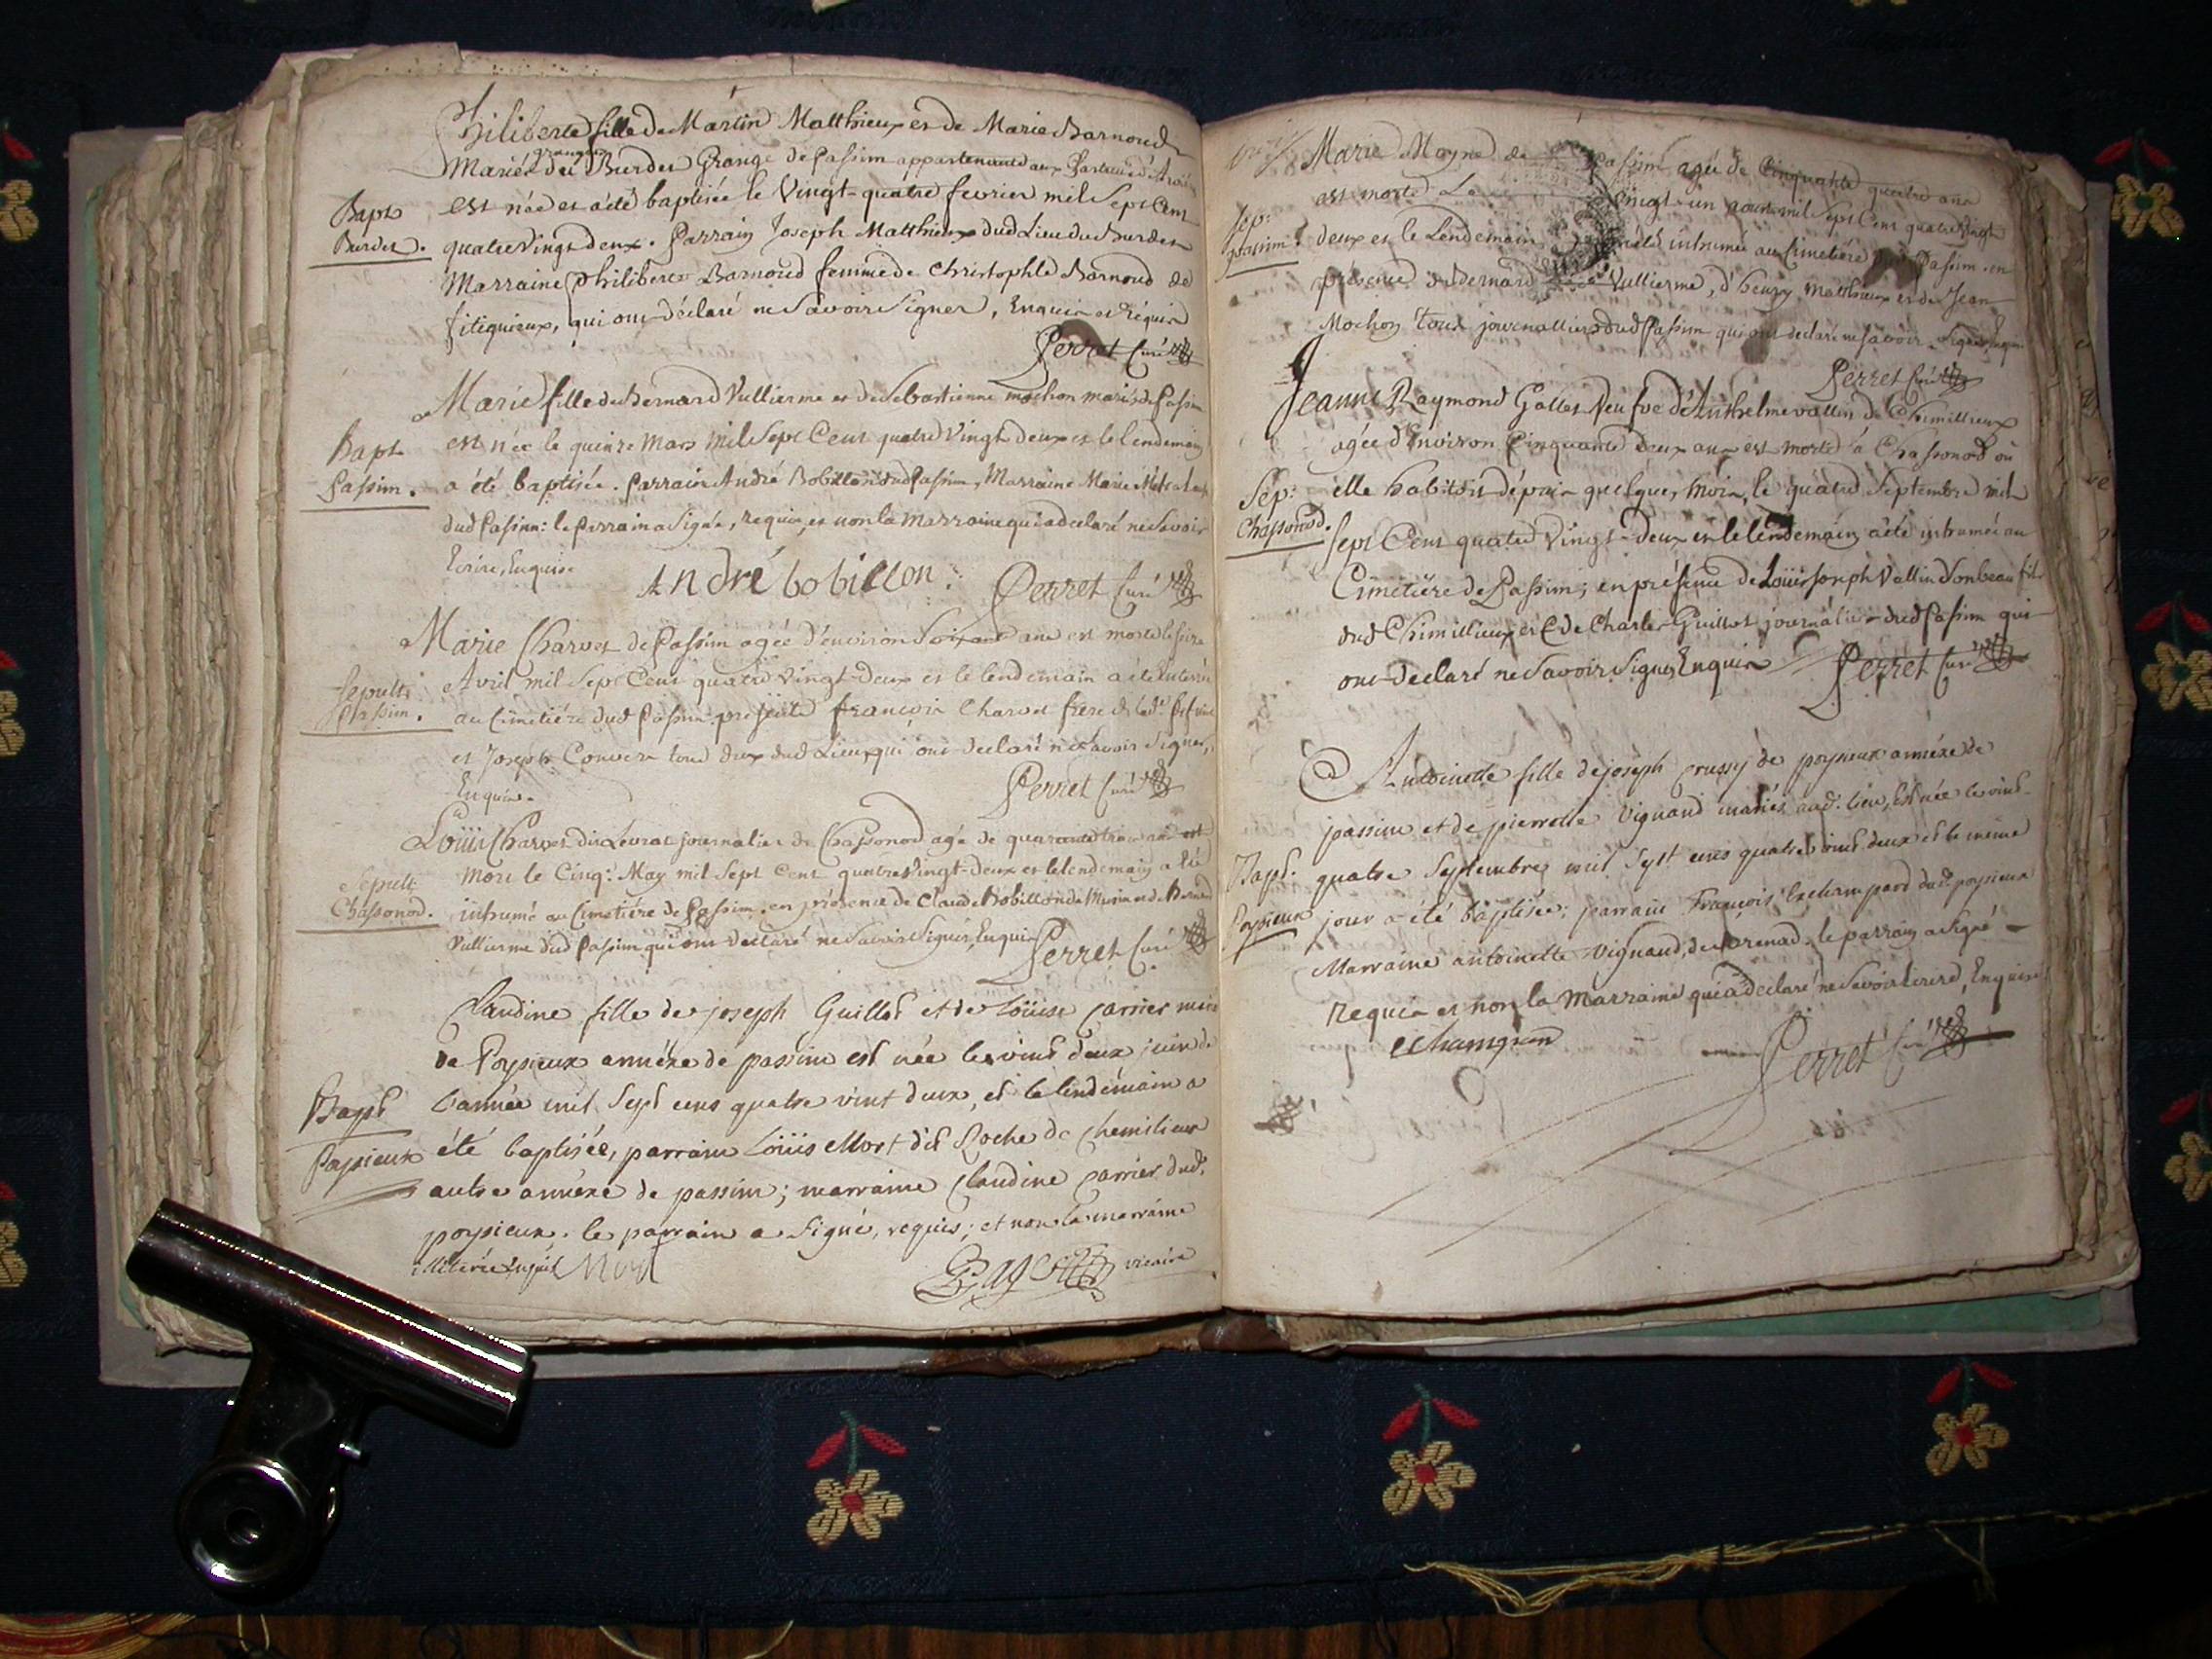 Philiberte fille de Martin Matthieux et de Marie Barnoud
Mariés granger du Burdet Grange de Passim appartenante aux
est née et a été baptisée le Vingt-quatre fevrier mil Sept Cent
Bapt.
Burdet.
quatre Vingt deux. Parrain Joseph Matthieux dud Lieu du Burdet
Marraine Philiberte Barnoud femme de Christophle Barnoud de
fitignieux, qui ont déclaré ne Savoir Signer, Enquis et Réquis
Perret Curé
Marie fille de Bernard Vullierme et de Sebastienne mochon mariés de Passim
est née le quinze Mars mil Sept Cent quatre Vingt deux et le lendemain
Bapt.
Passim.
a été baptisée. Parrain André Bobillon dud Passim, Marraine Marie
dud Passim: le Parrain a Signé, requis, et non la Marraine qui a declaré ne Savoir
Ecrire, Enquise
André bobillon. Perret Curé
Marie Charvet de Passim agée d'environ Soixante ans est morte le seize
Sepult:
Passim.
Avril mil Sept Cent quatre Vingt-Deux et le lendemain a été
au Cimetiére dud Passim. présents françois Charvet frere de lad.
et Joseph Convert tous deux dud Lieu, qui ont declaré ne Savoir Signer,
Enquis.
Perret Curé
Loüis Charvet dit Levrat journalier de Chassonod agé de quarante trois ans est
mort le Cinq: May mil Sept Cent quatre Vingt-Deux et le lendemain a été
Sepult:
Chassonod.
inhumé au Cimetiére de Passim. en présence de Claude Bobillon de et de Bernard
Vullierme dud Passim qui ont declaré ne Savoir Signer, Enquis
Perret Curé
Claudine fille de joseph Guillot et de Loüise Carrier
de Poysieux annéxe de passim est née le vint deux juin de
Bapt
Poysieux
l'année mil Sept cens quatre vint deux, et le lendémain a
été baptisée, parrain Loüis Mort dit Roche de Chemilieux
autre annéxe de passim; marraine Claudine Carrier dud.
poysieux. le parrain a Signé, requis; et non la marraine
illiterée Enquise Mort
vicaire
Marie Moyne de Passim agée de Cinquante quatre ans
est morte Le Vingt-un aoust mil Sept Cent quatre Vingt
Sep:
passim.
deux et le Lendemain a été inhumée au Cimetiére de Passim. en
présence de Bernard Vullierme, d'henry Matthieux et de Jean
Mochon tous journalliers dud Passim qui ont declaré ne savoir Signer, Enquis
Perret Curé
Jeanne Raymond Gallet Veufve d'Anthelme vallin de Chimillieux
agée d'Environ Cinquante deux ans est morte à Chassonod où
Sep:
Chassonod.
elle habitoit dépuis quelques mois, le quatre Septembre mil
Sept Cent quatre Vingt-Deux et le lendemain a été inhumée au
Cimetiére de Passim; en présence de Loüis Joseph Vallin Son beau fils
dud Chimillieux et de Charles Guillot journalier dud Passim qui
ont declaré ne Savoir Signer, Enquis
Perret Curé
Antoinette fille de joseph crussy de poysieux annéxe de
passim et de pierrette Vignand mariés aud. lieu, Est née le vint
Bapt.
Poysieux
quatre Septembre mil Sept cens quatre vint deux et le méme
jour a été baptisée; parrain François Echampard dud. poysieux
Marraine antoinette Vignand, de Brenad. le parrain a Signé
Requis et non la Marraine qui a declaré ne Savoir Ecrire, Enquise
Perret Curé